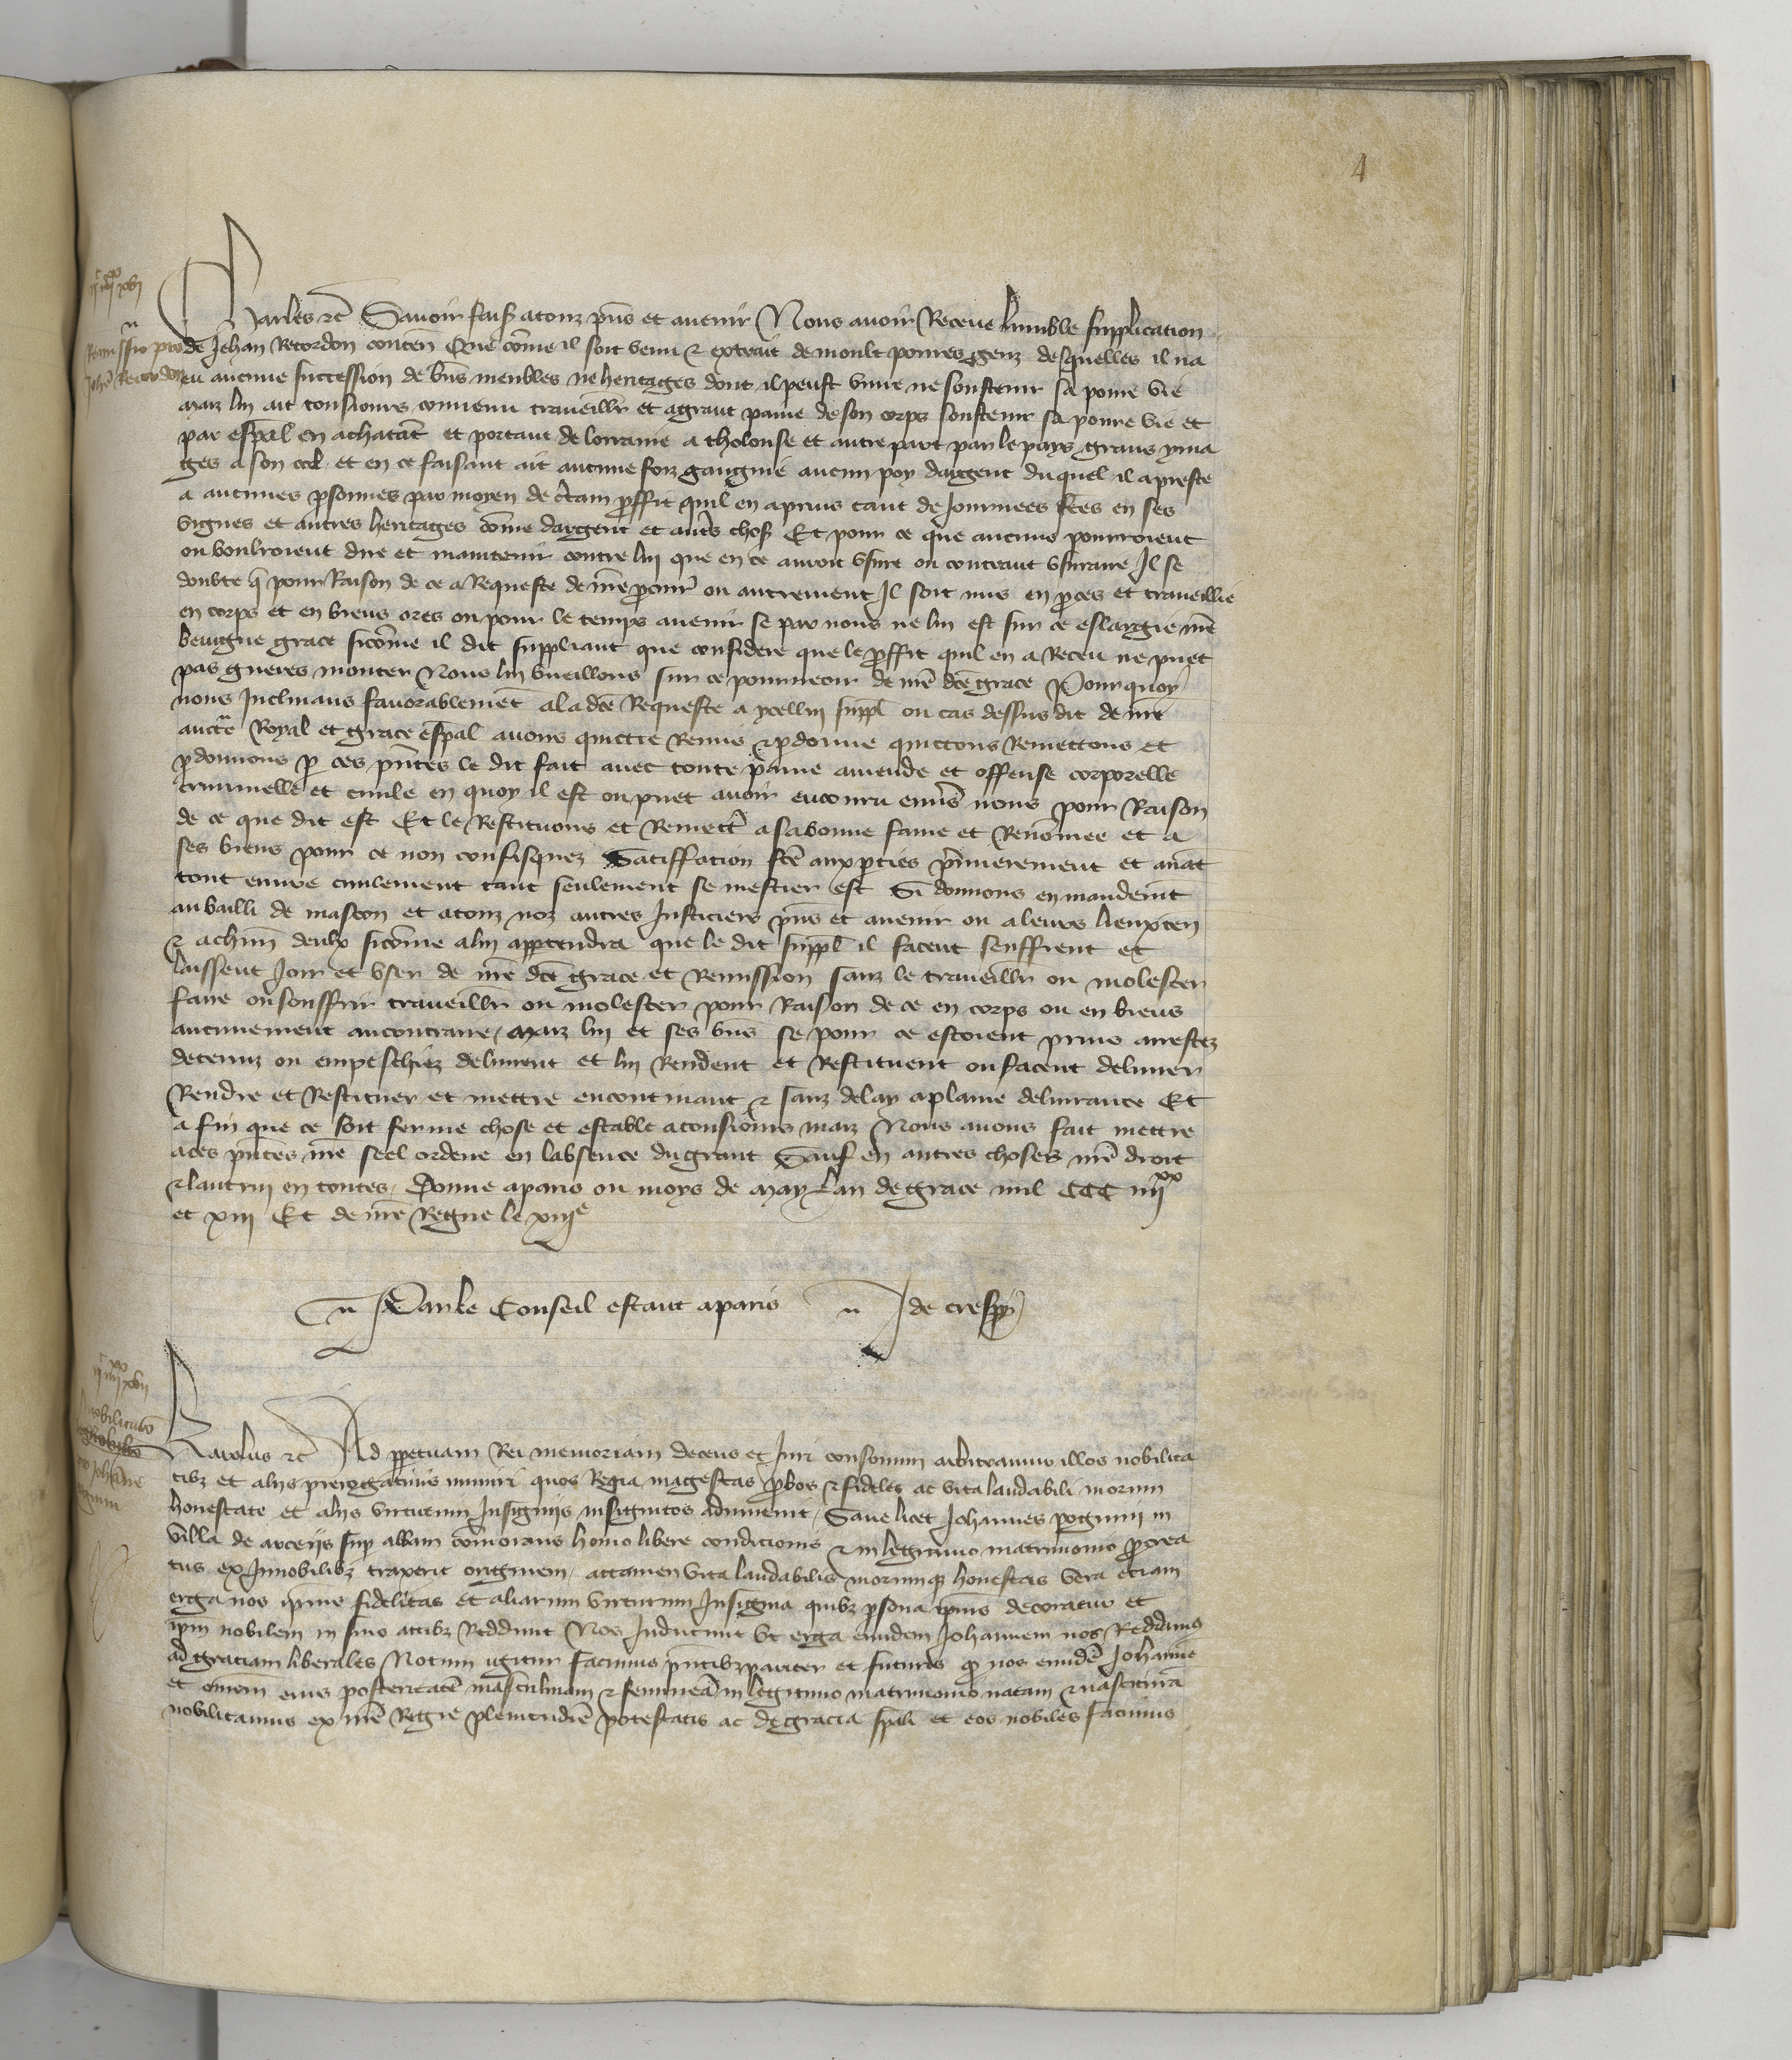 4
Charles etc Savoir faiss atouz pn̄s et avenir Nous avoir Receue lumble supplication
de Jehan Recordon contenn̄ Que cōme il soit venu & extrait de moult povres genz desquelles il na
eu aucune succession de bn̄s meubles ne heritages dont il peust vivre ne soustenir sa povre vie
maiz lui ait tousiours convenu traveillr et agrant paine de son corps soustenir sa povre vie et
par esp̄al en achatāt et portant de lorraine a tholouse et autre part par le pays grans yma
ges a son col et en ce faisant ait aucune foiz gaingnié aucun poy dargent duquel il a preste
a aucunes p̱sonnes par moyen de c̄tain p̱ffit quil en a prins tant de Journees fc̄es en ses
vignes et autres heritages cōme dargent et aut̄s chosß Et pour ce que aucuns pourroient
ou vouldroient dire et maintenir contre lui que en ce auroit usure ou contraut usuraire Il se
doubte q̄ pour Raison de ce a Requeste de nr̄e p̱cur̄ ou autrement Il soit mis en p̱ces et traveillie
en corps et en biens ores ou pour le temps avenir se par nous ne lui est sur ce eslargie nr̄e
benigne grace sicōme il dit suppliant que consideré que le p̱ffit quil en a Receu ne puet
pas gueres monter Nous lui vueillons sur ce pourveoir de nr̄e dc̄e grace Pourquoy
nous Inclinans favorablemēt ala dc̄e Requeste a ycellui suppl̄ ou cas dessus dit de nr̄e
auctē Royal et grace esp̄al avons quittie Remis & p̱donne quittons Remettons et
p̱donnons p̱ ces pn̄tes le dit fait avec toute paine amende et offense corporelle
criminelle et civile en quoy il est ou puet avoir encouru env̄s nous pour Raison
de ce que dit est Et le Restituons et Remett̄ a sa bonne fame et Renōmee et a
ses biens pour ce non confisquez Satiffation fc̄e aux p̱ties p̄mierement et avāt
tout euvre civilement tant seulement se mestier est Si donnons en mandemt
au bailli de mascon et atouz noz autres Justiciers pn̄s et avenir ou a leurs lieuxten̄
& achūn deulx sicōme alui appartendra que le dit suppl̄ il facent seuffrent et
laissent Joir et user de nr̄e dc̄e grace et Remission sanz le traveillr ou molester
faire ou souffrir traveillr ou molester pour Raison de ce en corps ou en biens
aucunement aucontraire, maiz lui et ses bn̄s se pour ce estoient prins arrestez
detenuz ou empeschiez delivrent et lui Rendent et Restituent ou facent delivrer
Rendre et Restituer et mettre encontinant & sanz delay aplaine delivrance Et
a fin que ce soit ferme chose et estable atousiours maiz Nous avons fait mettre
aces pn̄tes nr̄e seel ordene en labsence dugrant Sauf en autres choses nr̄e droit
& lautrui en toutes, Donne aparis ou moys de may Lan de grace mil CCC iiii xx
et xiii Et de nr̄e Regne le xiiie
Par le Conseil estant aparis J de crespy
Karolus etc Ad p̱petuam Rei memoriam decens et Juri consonum arbitramur illos nobilita
tibz et aliis prerogativis muniri quos Regia magestas p̱bos & fideles ac vita laudabili morum
honestate et aliis virtutum Insigniis insignitos adinvenit, Sane licet Johannes poginii in
villa de arceiis sup albam cōmorans homo libere condicionis & in legitimo matrimonio p̱crea
tus ex Innobilibz traxerit originem, attamen vita laudabilis morumqz honestas vera etiam
erga nos ip̄ius fidelitas et aliarum virtutum Insignia quibz p̱sona ip̄ius decoratur et
ip̄m nobilem in suis actibz Reddunt Nos Inducunt ut erga eundem Johannem nos Reddamus
ad graciam liberales Notum igitur facimus pn̄tibz pariter et futuris qꝫ nos eundē Johannē
et ōmem eius posteritatē masculinam & feminēa in legitimo matrimonio natam & nascituram
nobilitamus ex nr̄e Regie plenitudīe potestatis ac de gracia sp̄ali et eos nobiles facimus
Remissio pro
Johē Recordon